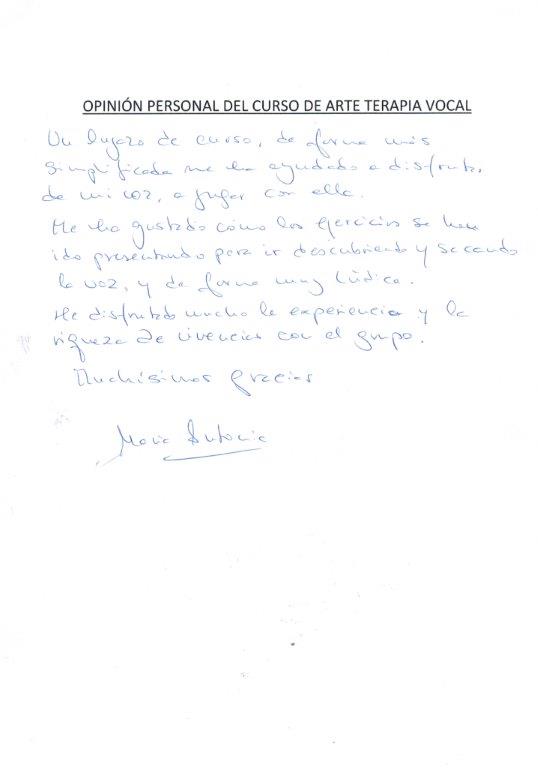 OPINIÓN PERSONAL DEL CURSO DE ARTE TERAPIA VOCAL
Un lujazo de curso, de forma más
simplificada me ha ayudado a disfrutar
de mi voz, a jugar con ella.
Me ha gustado cómo los ejercicios se han
ido presentando para ir descubriendo y sacando
la voz, y de forma muy lúdica.
He disfrutado mucho la experiencia y la
riqueza de vivencias con el grupo.
Muchísimas gracias
Maria Antonia